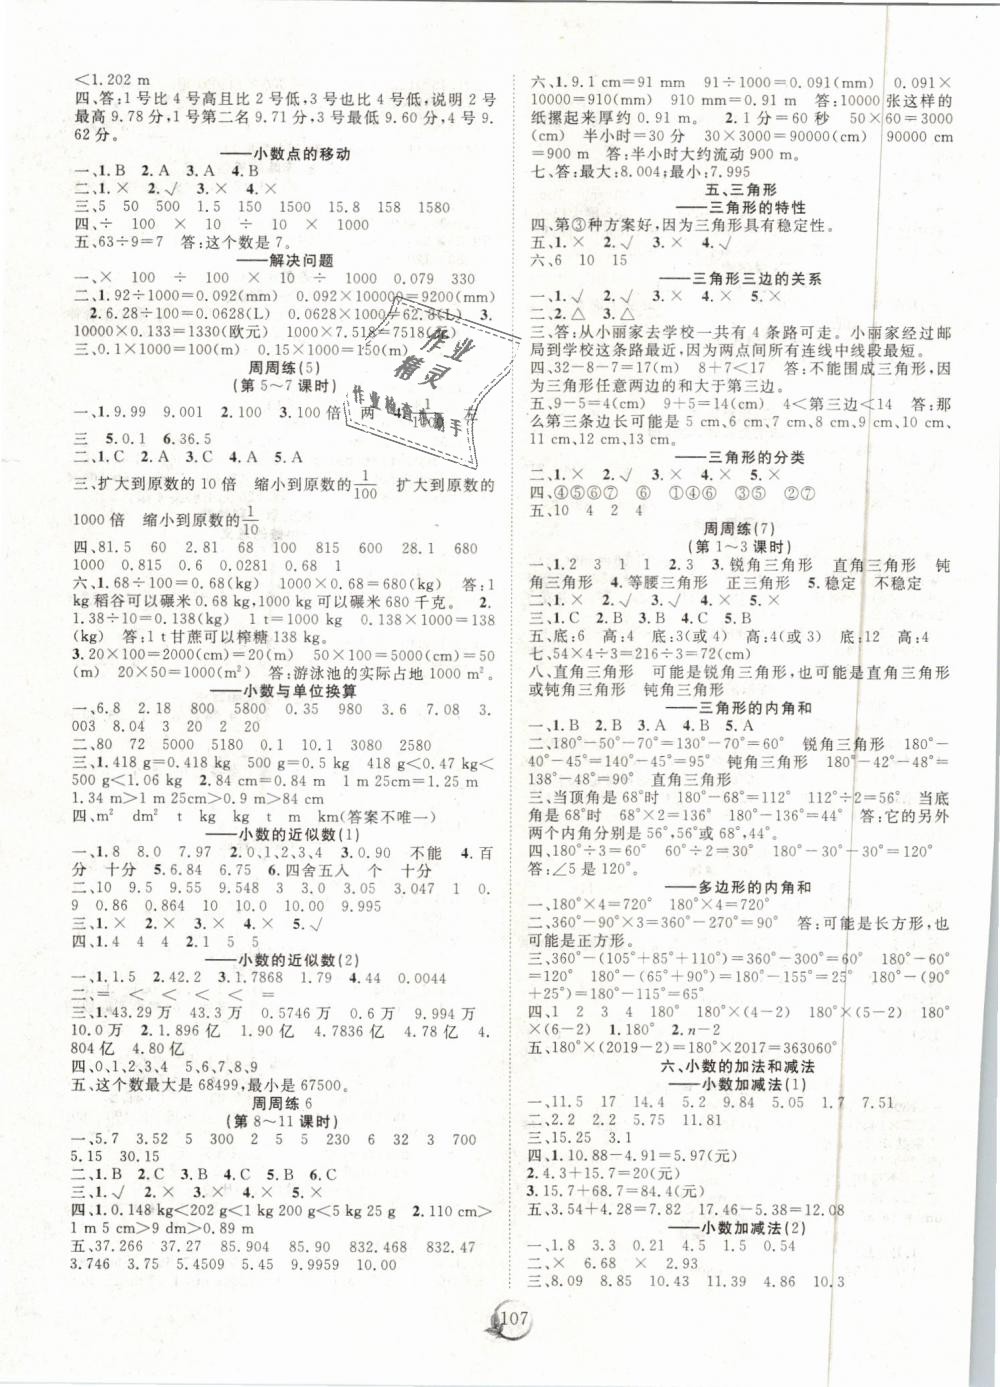 <1.202 m
四、答:1号比4号高且比2号低,3号也比4号高,说明2号
最高9.78分,1号第二名9.71分,3号最低9.60分,4号9.
62分。
——小数点的移动
一、1.B 2.A 3.A 4.B
二、1.× 2.√ 3.× 4.×
三、5 50 500 1.5 150 1500 15.8 158 1580
四、÷ 100 × 10 ÷ 10 × 1000
五、63÷9=7 答:这个数是7。
——解决问题
一、× 100 ÷ 100 × 10 ÷ 1000 0.079 330
二、1.92÷1000=0.092(mm) 0.092×100000=9200(mm)
2.6.28÷100=0.0628(L) 0.0628×1000=62.8(L) 3.
10000×0.133=1330(欧元) 1000×7.518=7518(元)
三、0.1×1000=100(m) 0.15×1000=150(m)
周周练(5)
(第5~7课时)
一、1.9.99 9.001 2.100 3.100倍 两 4.1/100 左
三 5.0.1 6.36.5
二、1.C 2.A 3.C 4.A 5.A
三、扩大到原数的10倍 缩小到原数的1/100 扩大到原数的
1000倍 缩小到原数的1/10
四、81.5 60 2.81 68 100 815 600 28.1 680
1000 0.815 0.6 0.0281 0.68 1
六、1.68÷100=0.68(kg) 0.68×1000=680(kg) 答:1
kg稻谷可以碾米0.68 kg,1000 kg可以碾米680千克。 2.
1.38÷10=0.138(kg) 1 t=1000 kg 0.138×1000=138
(kg) 答:1 t甘蔗可以榨糖138 kg。
3.20×100=2000(cm)=20(m) 50×100=5000(cm)=50
(m) 20×50=1000(m²) 答:游泳池的实际占地1000 m²。
——小数与单位换算
一、6.8 2.18 800 5800 0.35 980 3.6 7.08 3.
003 8.04 3 20 2 20
二、80 72 5000 5180 0.1 10.1 3080 2580
三、1.418 g=0.418 kg 500 g=0.5 kg 418 g<0.47 kg<
500 g<1.06 kg 2.84 cm=0.84 m 1 m 25cm=1.25 m
1.34 m>1 m 25cm>0.9 m>84 cm
四、m² dm² t kg kg t m km(答案不唯一)
——小数的近似数(1)
一、1.8 8.0 7.97 2.0,1,2,3,4 3.0.90 不能 4.百
分 十分 5.6.84 6.75 6.四舍五入 个 十分
二、10 9.5 9.55 19 19.4 19.40 3 3.05 3.047 1 0.
9 0.86 0.864 10 10.0 10.00 9.995
三、1.× 2.× 3.× 4.× 5.√
四、1.4 4 4 2.1 5 5
——小数的近似数(2)
一、1.1.5 2.42.2 3.1.7868 1.79 4.44 0.0044
二、= < < < < =
三、1.43.29万 43.3万 0.5746万 0.6万 9.994万
10.0万 2.1.896亿 1.90亿 4.7836亿 4.78亿 4.
804亿 4.80亿
四、0,1,2,3,4 5,6,7,8,9
五、这个数最大是68499,最小是67500。
周周练6
(第8~11课时)
一、5.7 3.52 5 300 2 5 5 230 6 32 3 700
5.15 30.15
二、1.B 2.A 3.B 4.C 5.B 6.C
三、1.√ 2.× 3.× 4.× 5.×
四、1.0.148 kg<202 g<1 kg 200 g<5 kg 25 g 2.110 cm>
1 m 5 cm>9 dm>0.89 m
五、37.266 37.27 85.904 85.90 832.468 832.47
3.746 3.75 5.4509 5.45 9.9959 10.00
六、1.9.1 cm=91 mm 91÷1000=0.091(mm) 0.091×
10000=910(mm) 910 mm=0.91 m 答:10000张这样的
纸摞起来厚约0.91 m。 2.1分=60秒 50×60=3000
(cm) 半小时=30分 30×3000=90000(cm) 90000(cm)
=900 m 答:半小时大约流动900 m。
七、答:最大:8.004;最小:7.995
五、三角形
——三角形的特性
四、第③种方案好,因为三角形具有稳定性。
五、1.× 2.√ 3.× 4.√
六、6 10 15
——三角形三边的关系
一、1.× 2.√ 3.× 4.× 5.×
二、2.△ 3.△
三、答:从小丽家去学校一共有4条路可走。小丽家经过邮
局到学校这条路最近,因为两点间所有连线中线段最短。
四、32-8-7=17(m) 8+7<17 答:不能围成三角形,因
为三角形任意两边的和大于第三边。
五、9-5=4(cm) 9+5=14(cm) 4<第三边<14 答:那
么第三条边长可能是5 cm,6 cm,7 cm,8 cm,9 cm,10 cm,
11 cm,12 cm,13 cm。
——三角形的分类
二、1.√ 2.× 3.√ 4.× 5.×
四、④⑤⑥⑦ ⑥ ①②③ ⑤ ②⑦
五、10 4 2 4
周周练(7)
(第1~3课时)
一、1.2 3 1 1 2.3 3.锐角三角形 直角三角形 钝
角三角形 4.等腰三角形 正三角形 5.稳定 不稳定
二、1.× 2.√ 3.√ 4.× 5.×
三、1.D 2.B 3.B 4.C 5.B
五、底:6 高:4 底:3(或4) 高:4(或3) 底:12 高:4
七、54×4÷3=216÷3=72(cm)
八、直角三角形 可能是锐角三角形,也可能是直角三角形
或钝角三角形 钝角三角形
——三角形的内角和
一、1.B 2.B 3.A 4.B 5.A
二、180°-50°-70°=130°-70°=60° 锐角三角形 180°-
40°-45°=140°-45°=95° 钝角三角形 180°-42°-48°=
138°-48°=90° 直角三角形
三、当顶角是68°时 180°-68°=112° 112°÷2=56° 当底
角是68°时 68°×2=136° 180°-136°=44° 答:它的另外
两个内角分别是56°,56°或68°,44°。
四、180°÷3=60° 60°÷2=30° 180°-30°-30°=120°
答:∠5是120°。
——多边形的内角和
一、180°×4=720° 180°×4=720°
二、360°-90°×3=360°-270°=90° 答:可能是长方形,也
可能是正方形。
三、360°-(105°+85°+110°)=360°-300°=60° 180°-60°
=120° 180°-(65°+90°)=180°-155°=25° 180°-(90°
+25°)=180°-115°=65°
四、1 2 3 4 180° 180°×(4-2) 180°×(5-2) 180°
×(6-2) 1.180° 2.n-2
五、180°×(2019-2)=180°×2017=363060°
六、小数的加法和减法
——小数加减法(1)
一、11.5 17 14.4 5.2 9.84 5.05 1.7 7.51
二、2.2 2.2 5.75 11.81
三、15.25 3.1
四、1.10.88-4.91=5.97(元)
2.4.3+15.7=20(元)
3.15.7+68.7=84.4(元)
五、3.54+4.28=7.82 17.46-5.38=12.08
——小数加减法(2)
一、1.8 3.3 0.21 4.5 1.5 0.54
二、× 6.8 × 2.93
三、8.09 8.85 10.43 11.39 16.86 10.3
107
作业
精灵
作业检查小助手